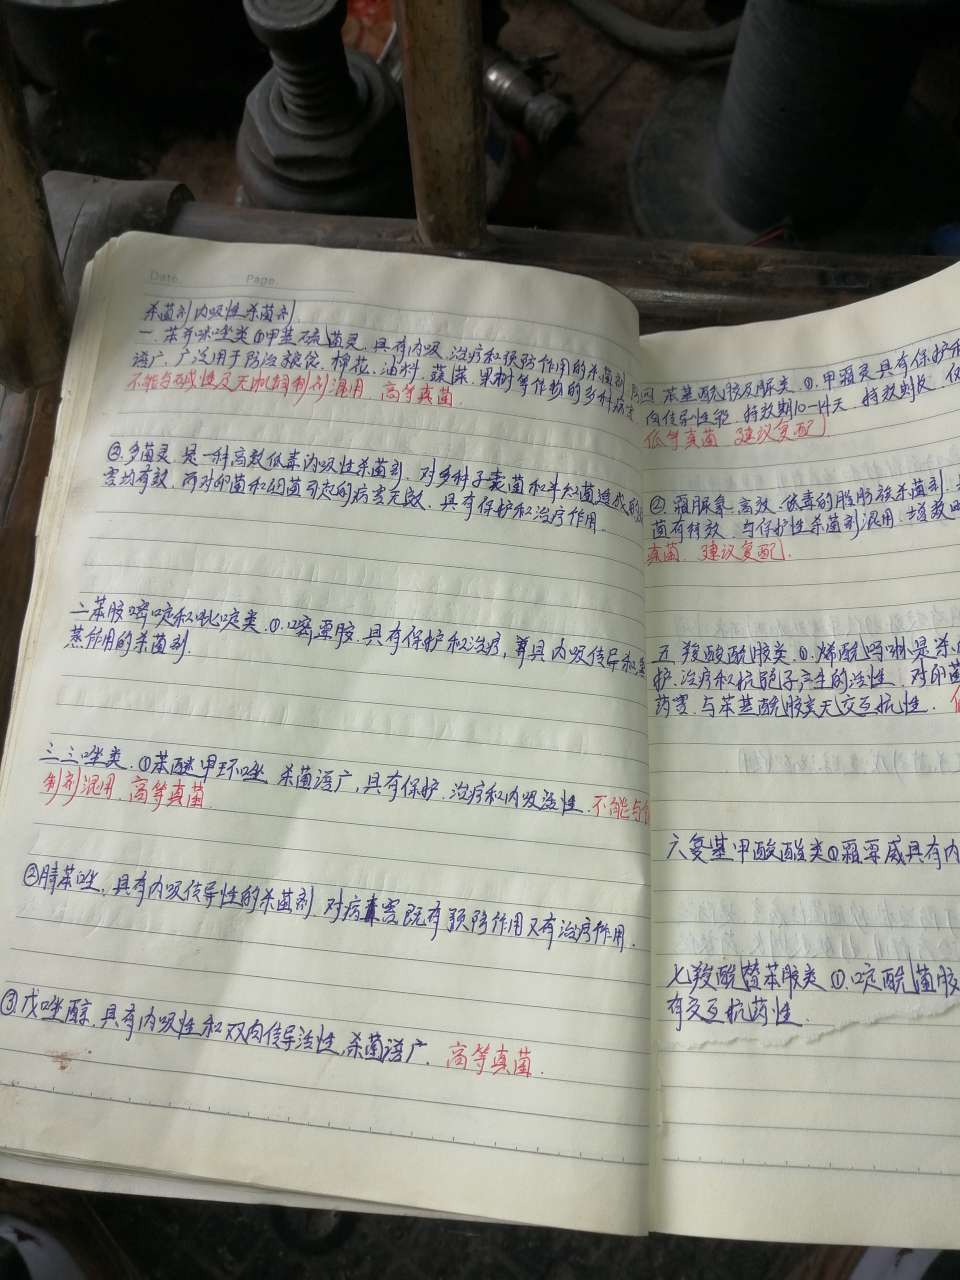 Date. Page.
杀菌剂内吸性杀菌剂
一.苯并咪唑类①甲基硫菌灵.具有内吸.治疗和预防作用的杀菌剂.
谱广.广泛用于防治粮食.棉花.油料.蔬菜.果树等作物的多种病害
不能与碱性及无机铜制剂混用 高等真菌
②.多菌灵.是一种高效低毒内吸性杀菌剂.对多种子囊菌和半知菌造成的病
害均有效.而对卵菌和细菌引起的病害无效.具有保护和治疗作用.
二苯胺嘧啶和吡啶类.①.嘧霉胺.具有保护和治疗,兼具内吸传导和熏
蒸作用的杀菌剂.
三.三唑类.①苯醚甲环唑 杀菌谱广,具有保护.治疗和内吸活性.不能与
制剂混用.高等真菌
②腈苯唑.具有内吸传导性的杀菌剂 对病害既有预防作用又有治疗作用.
③.戊唑醇.具有内吸性和双向传导活性.杀菌谱广. 高等真菌.
四 苯基酰胺及脲类.①.甲霜灵具有保护和
向传导性能.持效期10-14天.持效
低等真菌 建议复配
②.霜脲氰.高效.低毒的脂肪族杀菌剂.
菌有特效.与保护性杀菌剂混用.增效
真菌.建议复配.
五 羧酸酰胺类.①.烯酰吗啉是杀
护.治疗和抗孢子产生的活性.对卵菌
药害.与苯基酰胺类无交互抗性.
六氨基甲酸酯类①霜霉威具有内
七羧酰替苯胺类①.啶酰菌胺
有交互抗药性.